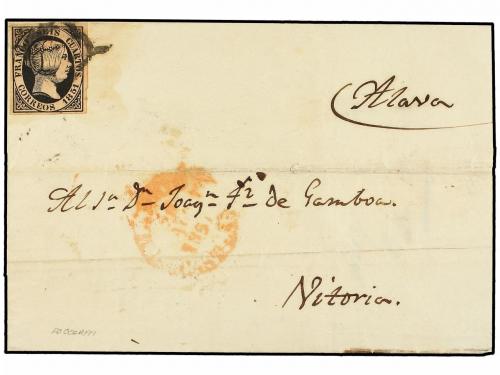 FRANCO SEIS CUARTOS
CORREOS 1851
Alava
Al Sr. Dn Joaqn Fz de Gamboa.
Vitoria.